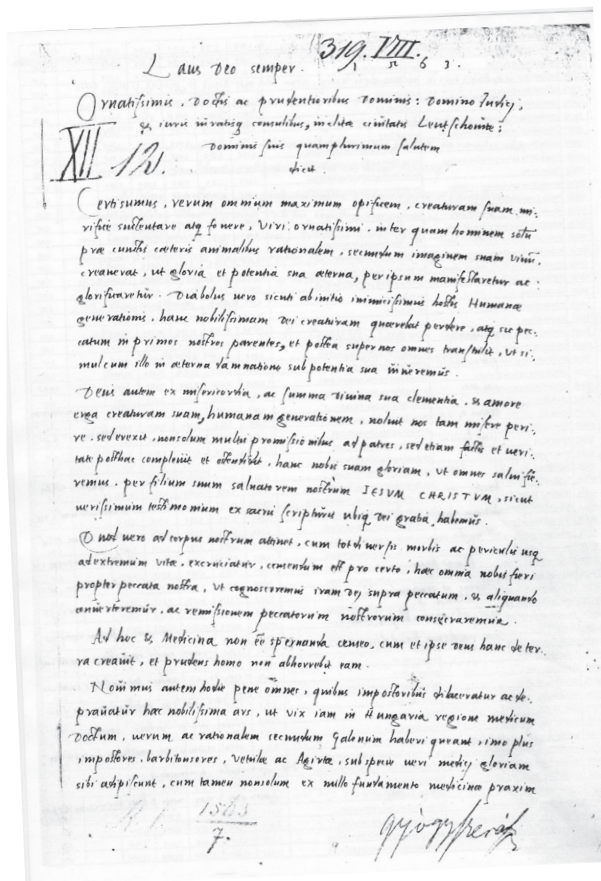 319. VIII.
Laus Deo semper. 1 5 6 3.
Ornatissimis, Doctis ac prudentioribus Dominis: Domino Judici,
& iuris iuratisq consulibus, inclitæ ciuitatis Leutschouiæ:
Dominis suis quamplurimum salutem
dicit.
XII 12.
Certissimus, verum omnium maximum opificem, creaturam suam mi:
rificè sustentare atq fouere, Viri ornatissimi, inter quam hominem solū
præ cunctis cæteris animalibus rationalem, secundum imaginem suam viuū
creauerat, ut gloria et potentia sua æterna, per ipsum manifestaretur ac
glorificaretur. Diabolus uero sicuti ab initio inimicissimus hostis Humanæ
generationis, hanc nobilissimam Dei creaturam quærebat perdere, atq sic pec:
catum in primos nostros parentes, et postea super nos omnes transtulit, ut si:
mul cum illo in æterna damnatione sub potentia sua
Deus autem ex misericordia, ac summa diuina sua clementia, & amore
erga creaturam suam, humanam generationem, noluit nos tam misere peri:
re, sed erexit, non solum multis promissionibus ad patres, sed etiam factis et ueri:
tate posthac compleuit et ostendidit, hanc nobis suam gloriam, ut omnes salui fie:
remus, per filium suum saluatorem nostrum IESUM CHRISTVM, sicut
uerissimum testimonium ex sacris scripturis ubiq Dei gratia habemus.
Quod uero ad corpus nostrum attinet, cum tot diuersis morbis ac periculis usq
ad extremum vitæ, excruciatur, censendum est pro certo, hæc omnia nobis fieri
propter peccata nostra, ut cognosceremus iram Dei supra peccatum, & aliquando
conuerteremur, ac remissionem peccatorum nostrorum consequeremur.
Ad hoc & Medicina non ēē spernanda censeo, cum et ipse Deus hanc de ter:
ra creauit, et prudens homo non abhorrebit eam.
Nouimus autem hodie pene omnes, quibus impostoribus dilaceratur ac de:
prauatur hæc nobilissima ars, ut vix iam in Hungaria regione medicum
Doctum, uerum ac rationalem secundum Galenum haberi queant, imo plus
impostores, barbitonsores, vetulæ ac Agirtæ, sub specie ueri medici gloriam
sibi adipiscunt, cum tamen non solum ex nullo fundamento medicinæ praxim
1563
7.